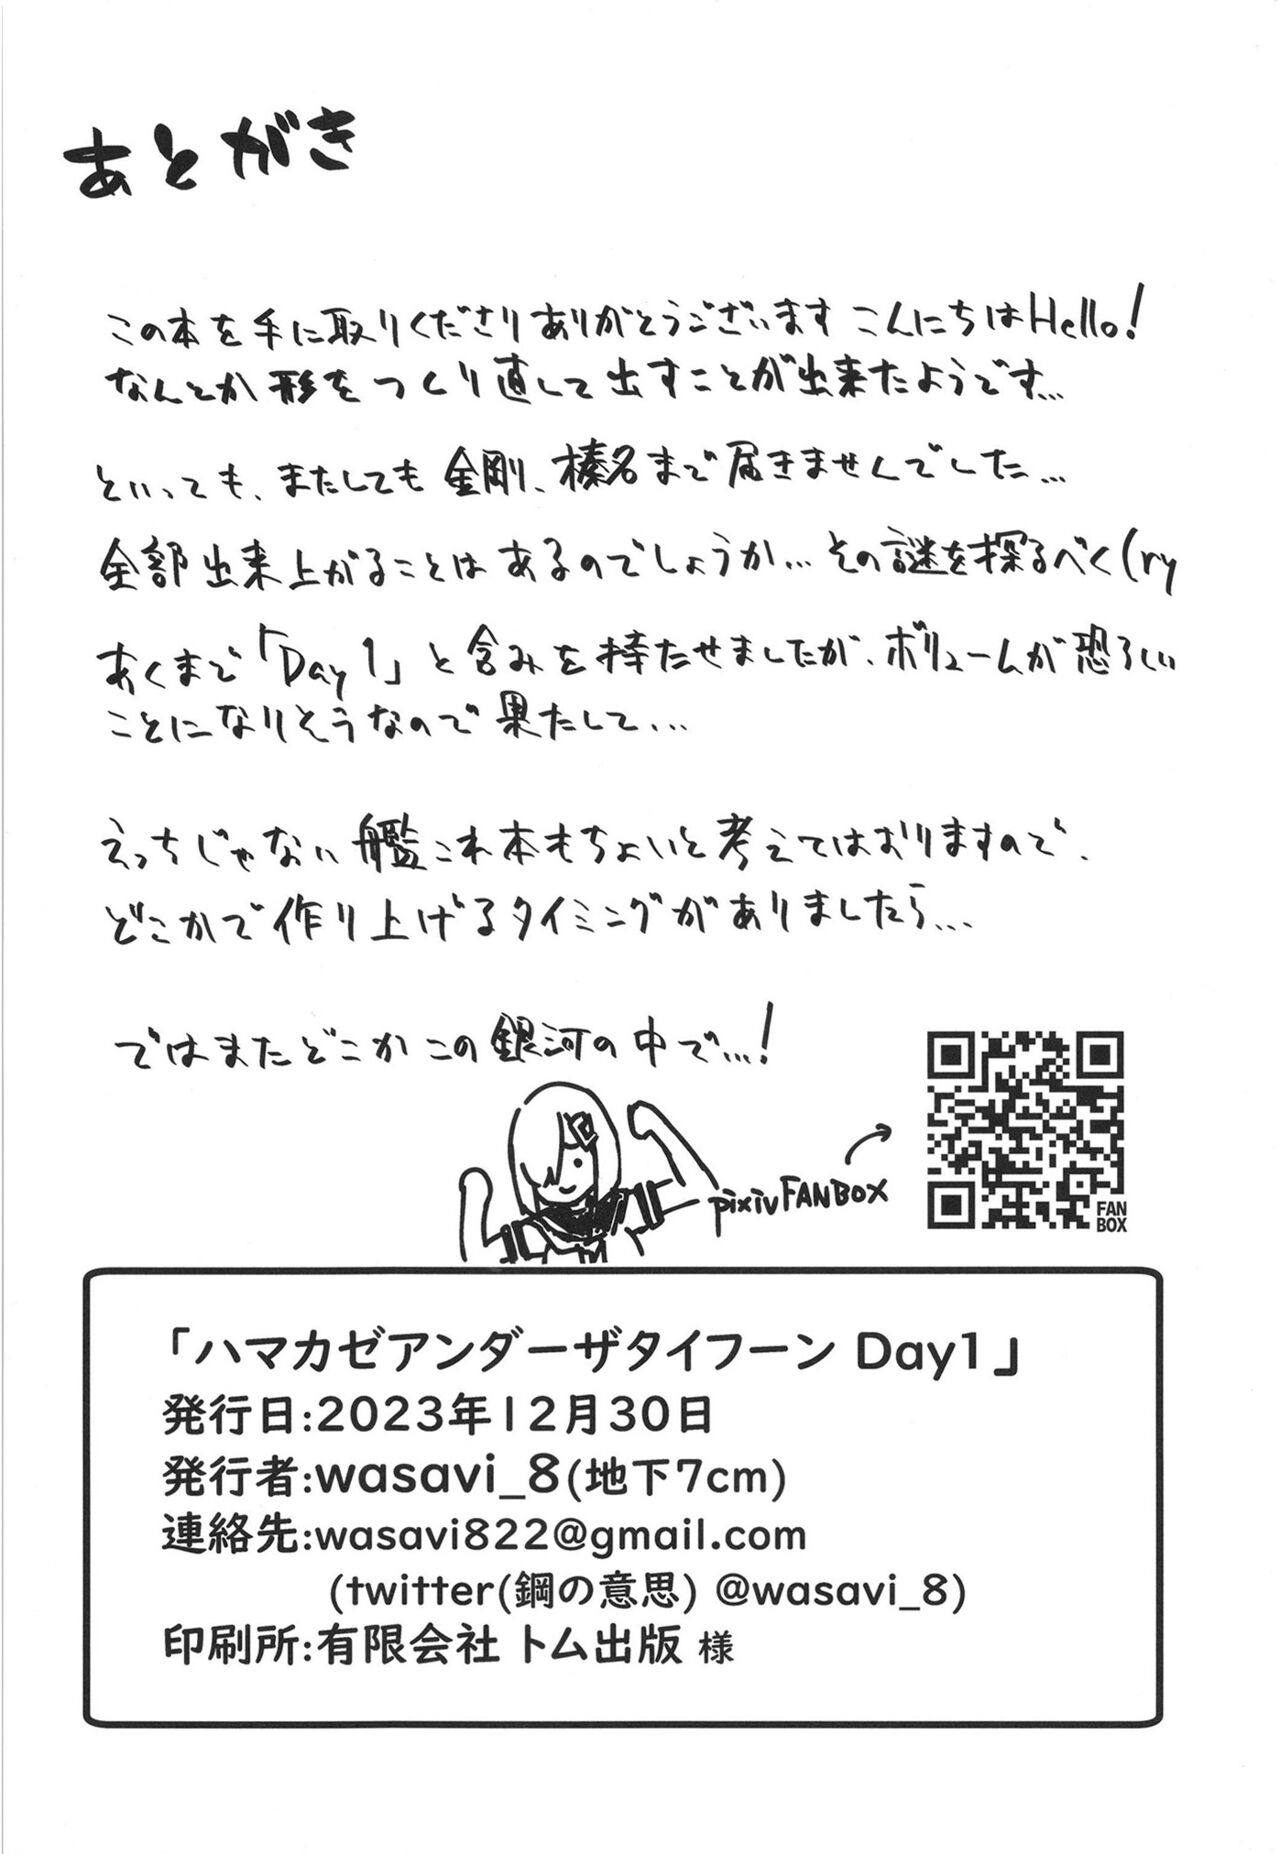 あとがき
この本を手に取りくださりありがとうございます こんにちはHello!
なんとか形をつくり直して出すことが出来たようです...
といっても、またしても金剛、榛名まで届きませんでした...
全部出来上がることはあるのでしょうか... その謎を探るべく(ry
あくまで「Day1」と含みを持たせましたが、ボリュームが恐ろしい
ことになりそうなので果たして...
えっちじゃない艦これ本もちょいと考えてはおりますので、
どこかで作り上げるタイミングがありましたら...
ではまたどこかこの銀河の中で...!
pixivFANBOX
FAN
BOX
「ハマカゼアンダーザタイフーン Day1」
発行日:2023年12月30日
発行者:wasavi_8(地下7cm)
連絡先:wasavi822@gmail.com
(twitter(鋼の意思) @wasavi_8)
印刷所:有限会社 トム出版 様